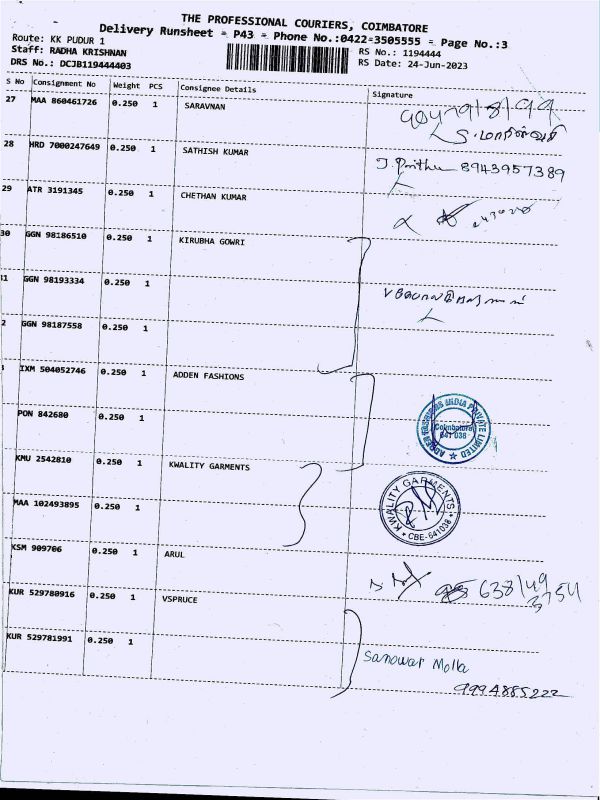 THE PROFESSIONAL COURIERS, COIMBATORE
Delivery Runsheet = P43 = Phone No.:0422=3505555 = Page No.:3
Route: KK PUDUR 1
Staff: RADHA KRISHNAN
DRS No.: DCJB119444403
RS No.: 1194444
RS Date: 24-Jun-2023
S No Consignment No Weight PCS Consignee Details Signature
27 MAA 860461726 0.250 1 SARAVNAN
28 HRD 7000247649 0.250 1 SATHISH KUMAR 8943957389
29 ATR 3191345 0.250 1 CHETHAN KUMAR
30 GGN 98186510 0.250 1 KIRUBHA GOWRI
GGN 98193334 0.250 1
GGN 98187558 0.250 1
IXM 504052746 0.250 1 ADDEN FASHIONS
PON 842680 0.250 1
ADDEN FASHIONS INDIA PRIVATE LIMITED
Coimbatore
641 038
KMU 2542810 0.250 1 KWALITY GARMENTS
MAA 102493895 0.250 1
KWALITY GARMENTS
CBE-641038
KSM 909706 0.250 1 ARUL
KUR 529780916 0.250 1 VSPRUCE
KUR 529781991 0.250 1
Sanowar Molla
9994885222